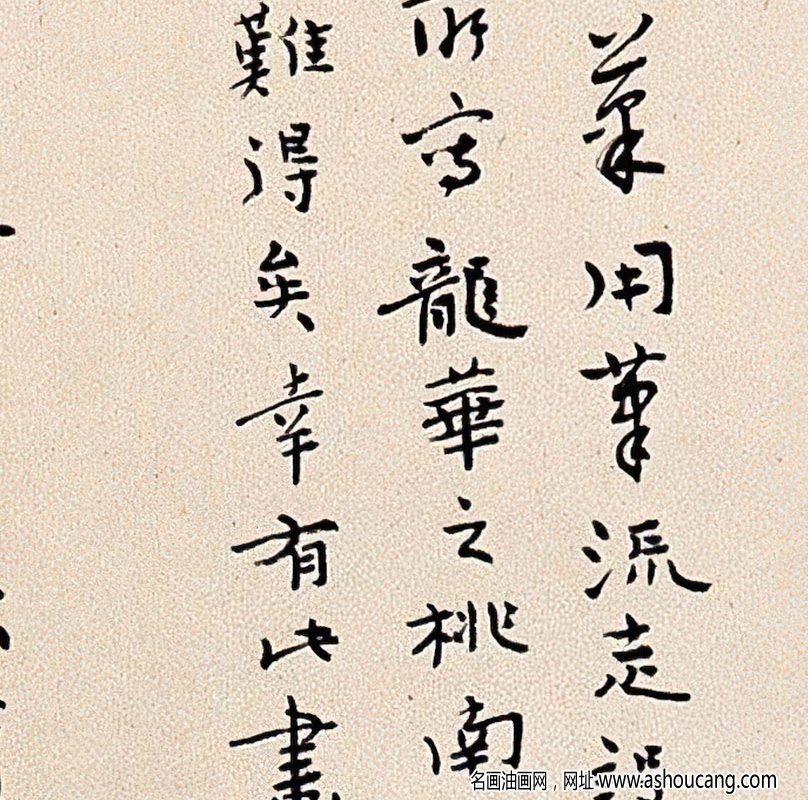 筆用筆流走
所寫龍華之桃南
難得矣幸有此畫
名画油画网，网址 www.ashoucang.com